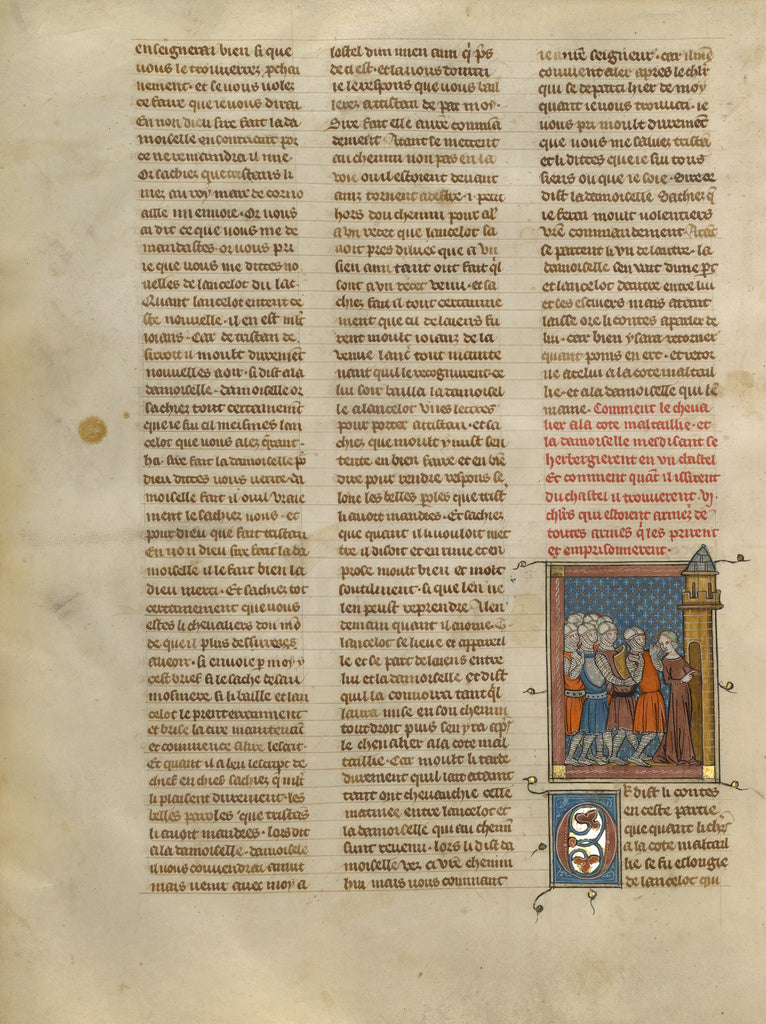 enseignerai bien si que
vous le trouverez ꝑchai
nement · et se vous volez
ce faire que ie vous dirai
En non dieu sire fait la da
moiselle en couvenant por
ce ne remaindra il mie ·
Or sachiez que tristans li
niez au roy marc de corno
aille mi envoie · Or vous
ai dit ce que vous me de
mandastes · or vous pri
ie que vous me dittes no
velles de lancelot du lac
Quant lancelot entent ce
ste nouvelle · il en est mlt
ioians · Car de tristan de
siroit il moult durement
nouvelles a oir · si dist a la
damoiselle · damoiselle or
sachiez tout certainement
que ie sui cil meismes lan
celot que vous alez querant ·
ha · sire fait la damoiselle po
dieu dittes vous verite · da
moiselle fait il oujl vraie
ment le sachiez vous · et
pour dieu que fait tristan
En non dieu sire fait la da
moiselle il le fait bien la
dieu merci · Et sachiez tot
certainement que vous
estes li chevaliers dou mō
de que il plus desirreroit
a veoir · si envoie ꝑ moy
cest brief si le sache de sau
mosniere si li baille et lan
celot le prent erraument
et brise la cire maintenāt
et commence a lire les lait ·
Et quant il a leu lescript de
chief en chief sachiez q̄ mlt
li plaisent durement les
belles paroles que tristans
li avoit mandees · lors dit
a la damoiselle · damoisele
il vous couvendra auant
mais venir avec moy a
lostel dun mien ami q̄ ps
de ci est · et la vous donrai
ie le respons que vous bail
lerez a tristan de par moy ·
Sire fait elle a vre comm̄a
dement · Atant se mettent
au chemin non pas en la
voie ou il estoient devant
ainz tornent a destre · i · petit
hors dou chemin pour al̓
a un recet que lancelot sa
voit pres dilluec que a un
sien ami tant ont fait q̓l
sont a un recet venu · et sa
chiez fait il tout certainne
ment que cil de laiens fu
rent moult ioianz de la
venue lanc̓ tout mainte
nant quil le recognurent · ce
lui soir bailla la damoisel
le a lancelot unes lettres
pour porter a tristan · et sa
chiez que moult y mist sen
tente en bien faire et en biē
dire pour rendre respons se
lonc les belles ꝑoles que trist̓
li avoit mandees · Et sachiez
que quant il i vouloit met
tre il disoit et en rime et en
prose moult bien et molt
soutilment · si que len ne
len peust reprendre · A len
demain quant il aiorne ·
lancelot se lieve et appareil
le et se part de laiens entre
lui et la damoiselle et dist
quil la convoiera tant q̓l
laura mise en son chemin
tout droit puis sen yra aps̓
le chevalier a la cote mal
taillie · Car moult li tarde
durement quil lait ataint
tant ont chevauchie celle
matinee entre lancelot et
la damoiselle qui au chemin
sunt revenu · lors li dist da
moiselle vez ci vre chemin
hui mais vous commant
ie a nre seigneur · car il me
couvient aler apres le chlr̓
qui se departi hier de moy
quant ie vous trouvai · ie
vous pri moult durement
que vous me saluez tristā
et li dittes que ie sui tous
siens ou que ie soie · Sire ce
dist la damoiselle sachiez q̄
ie ferai moult volentiers
vre commandement · Atāt
se partent li un de lautre · la
damoiselle sen vait dune pt̓
et lancelot dautre entre lui
et ses escuiers mais atant
laisse ore li contes a parler de
lui · car bien y saura retorner
quant poins en ert · et retor
ne a celui a la cote maltail
lie · et a la damoiselle qui le
maine · Comment le cheva
lier a la cote maltaillie · et
la damoiselle mesdisant se
herbergierent en un chastel
Et comment quant il issirent
du chastel il trouverent · vj ·
chlr̓s qui estoient armez de
toutes armes q̓ les prirent
et emprisonnerent ·
Or dist li contes
en ceste partie
que quant li chlr̓
a la cote maltail
lie se fu eslongie
de lancelot qui